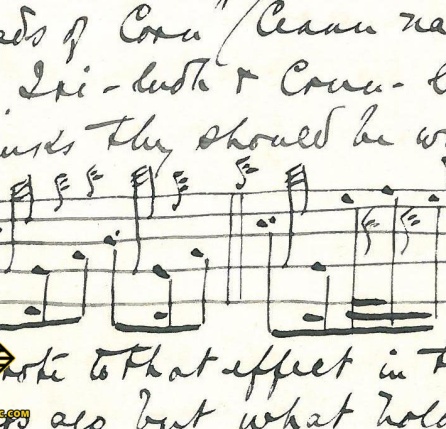 ads of Corn" (Ceann na
Iri-ludh & Crun-l
inks they should be w
note to that effect in t
ago but what
C.COM